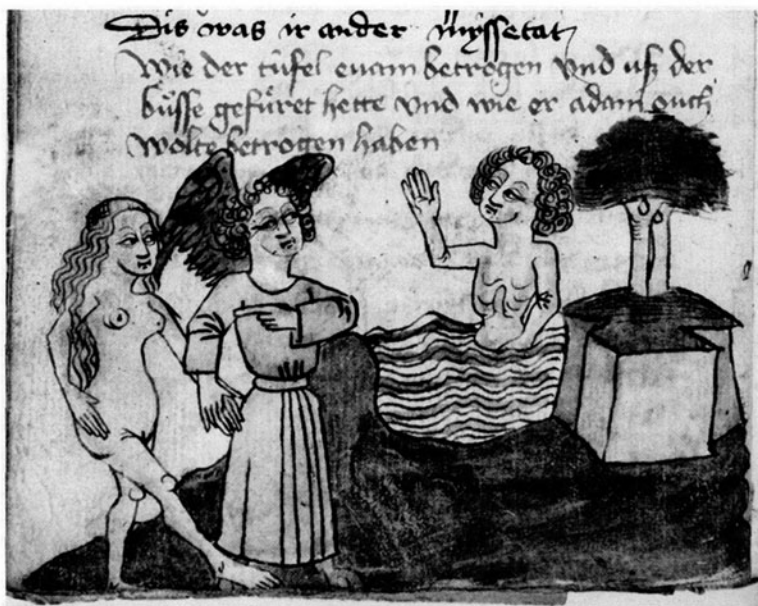 Dis was ir ander mÿssetat
Wie der tüfel euam betrogen vnd uſz der
büsse gefüret hette vnd wie er adam ouch
wolte betrogen haben